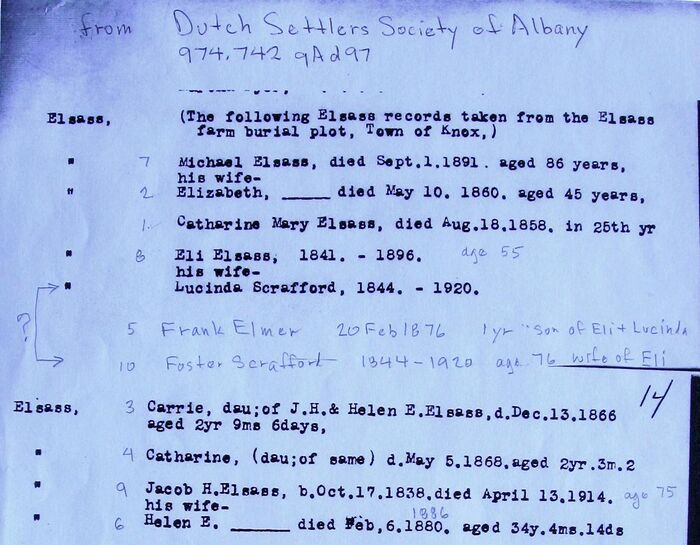 from Dutch Settlers Society of Albany
974.742 qAd97
Elsass, (The following Elsass records taken from the Elsass
farm burial plot, Town of Knox,)
" 7 Michael Elsass, died Sept.1.1891. aged 86 years,
his wife-
" 2 Elizabeth, _____ died May 10. 1860. aged 45 years,
1. Catharine Mary Elsass, died Aug.18.1858. in 25th yr
" 8 Eli Elsass, 1841. - 1896. age 55
his wife-
" Lucinda Scrafford, 1844. - 1920.
?
5 Frank Elmer 20 Feb 1876 1yr "son of Eli + Lucinda
10 Foster Scrafford 1844-1920 age 76 wife of Eli
14
Elsass, 3 Carrie, dau;of J.H.& Helen E.Elsass,d.Dec.13.1866
aged 2yr 9ms 6days,
" 4 Catharine, (dau;of same) d.May 5.1868.aged 2yr.3m.2
" 9 Jacob H.Elsass, b.Oct.17.1838.died April 13.1914. age 75
his wife-
1886
" 6 Helen E. ______ died Feb,6.1880. aged 34y.4ms.14ds